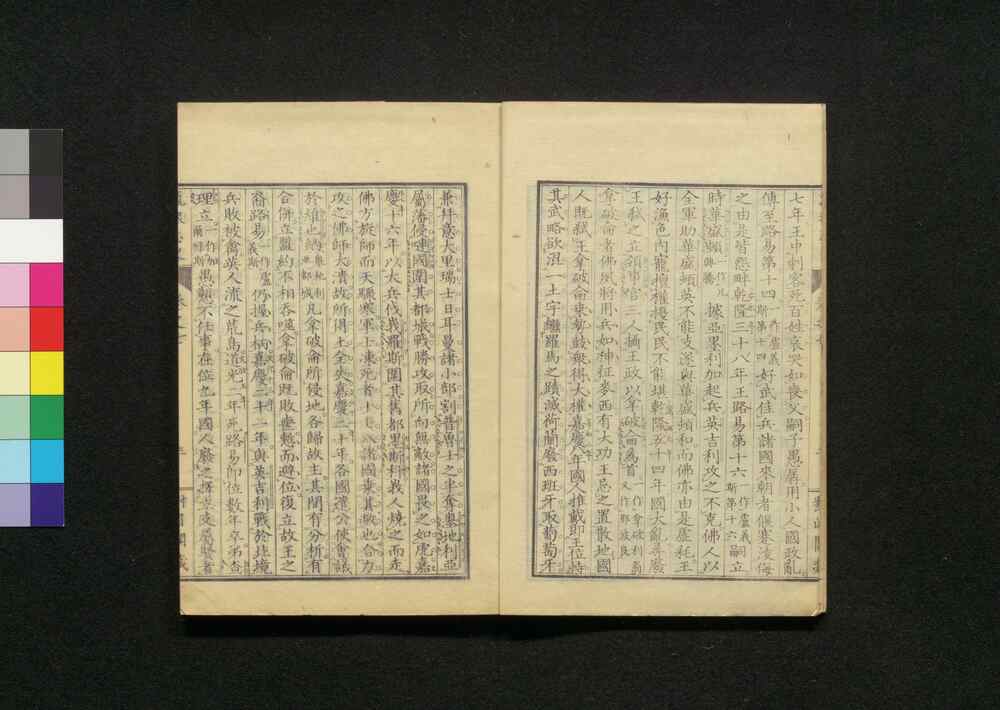 七年王中刺客死百姓哀哭如喪父嗣子愚孱用小人國政亂
傳至路易第十四一作盧義斯第十四好武佳兵諸國來朝者偃蹇淩侮
之由是皆怨畔乾隆三十八年王路易第十六一作盧義斯第十六嗣立
時華盛頓一作兀興騰據亞墨利加起兵英吉利攻之不克佛人以
全軍助華盛頓英不能支遂與華盛頓和而佛亦由是虛耗王
好漁色內寵擅權擾民民不能堪乾隆五十四年國大亂尋廢
王弒之立領事官三人攝王政以拿破侖為首一作拿破利翁又作那波良
拿破侖者佛夙將用兵如神征麥西有大功王忌之置散地國
人既弒王拿破侖乘勢鼓衆得大權嘉慶八年國人推戴即王位恃
其武略欲混一土宇繼羅馬之蹟滅荷蘭廢西班牙取葡萄牙
兼并意大里瑞士日耳曼諸小部割普魯士之半奪墺地利亞
屬藩侵嗹國圍其都城戰勝攻取所向無敵諸國畏之如虎嘉
慶十六年以大兵伐峩羅斯圍其舊都墨斯科峩人燒之而走
佛方旋師而天驟寒軍士凍死者十七八諸國乘其敝也合力
攻之佛師大潰故所得土全失嘉慶二十年各國遣公使會議
於維也納奧地利亞都城凡拿破侖所侵地各歸故主其間有分析有
合併立盟約不相吞噬拿破侖既敗慙而避位復立故王之
裔路易一作盧義斯仍握兵柄嘉慶二十一年與英吉利戰於邊境
兵敗被禽英人流之荒島道光二年死路易即位數年卒弟查
理立一作加爾祿斯愚戇不任事在位九年國人廢之擇立支屬賢者